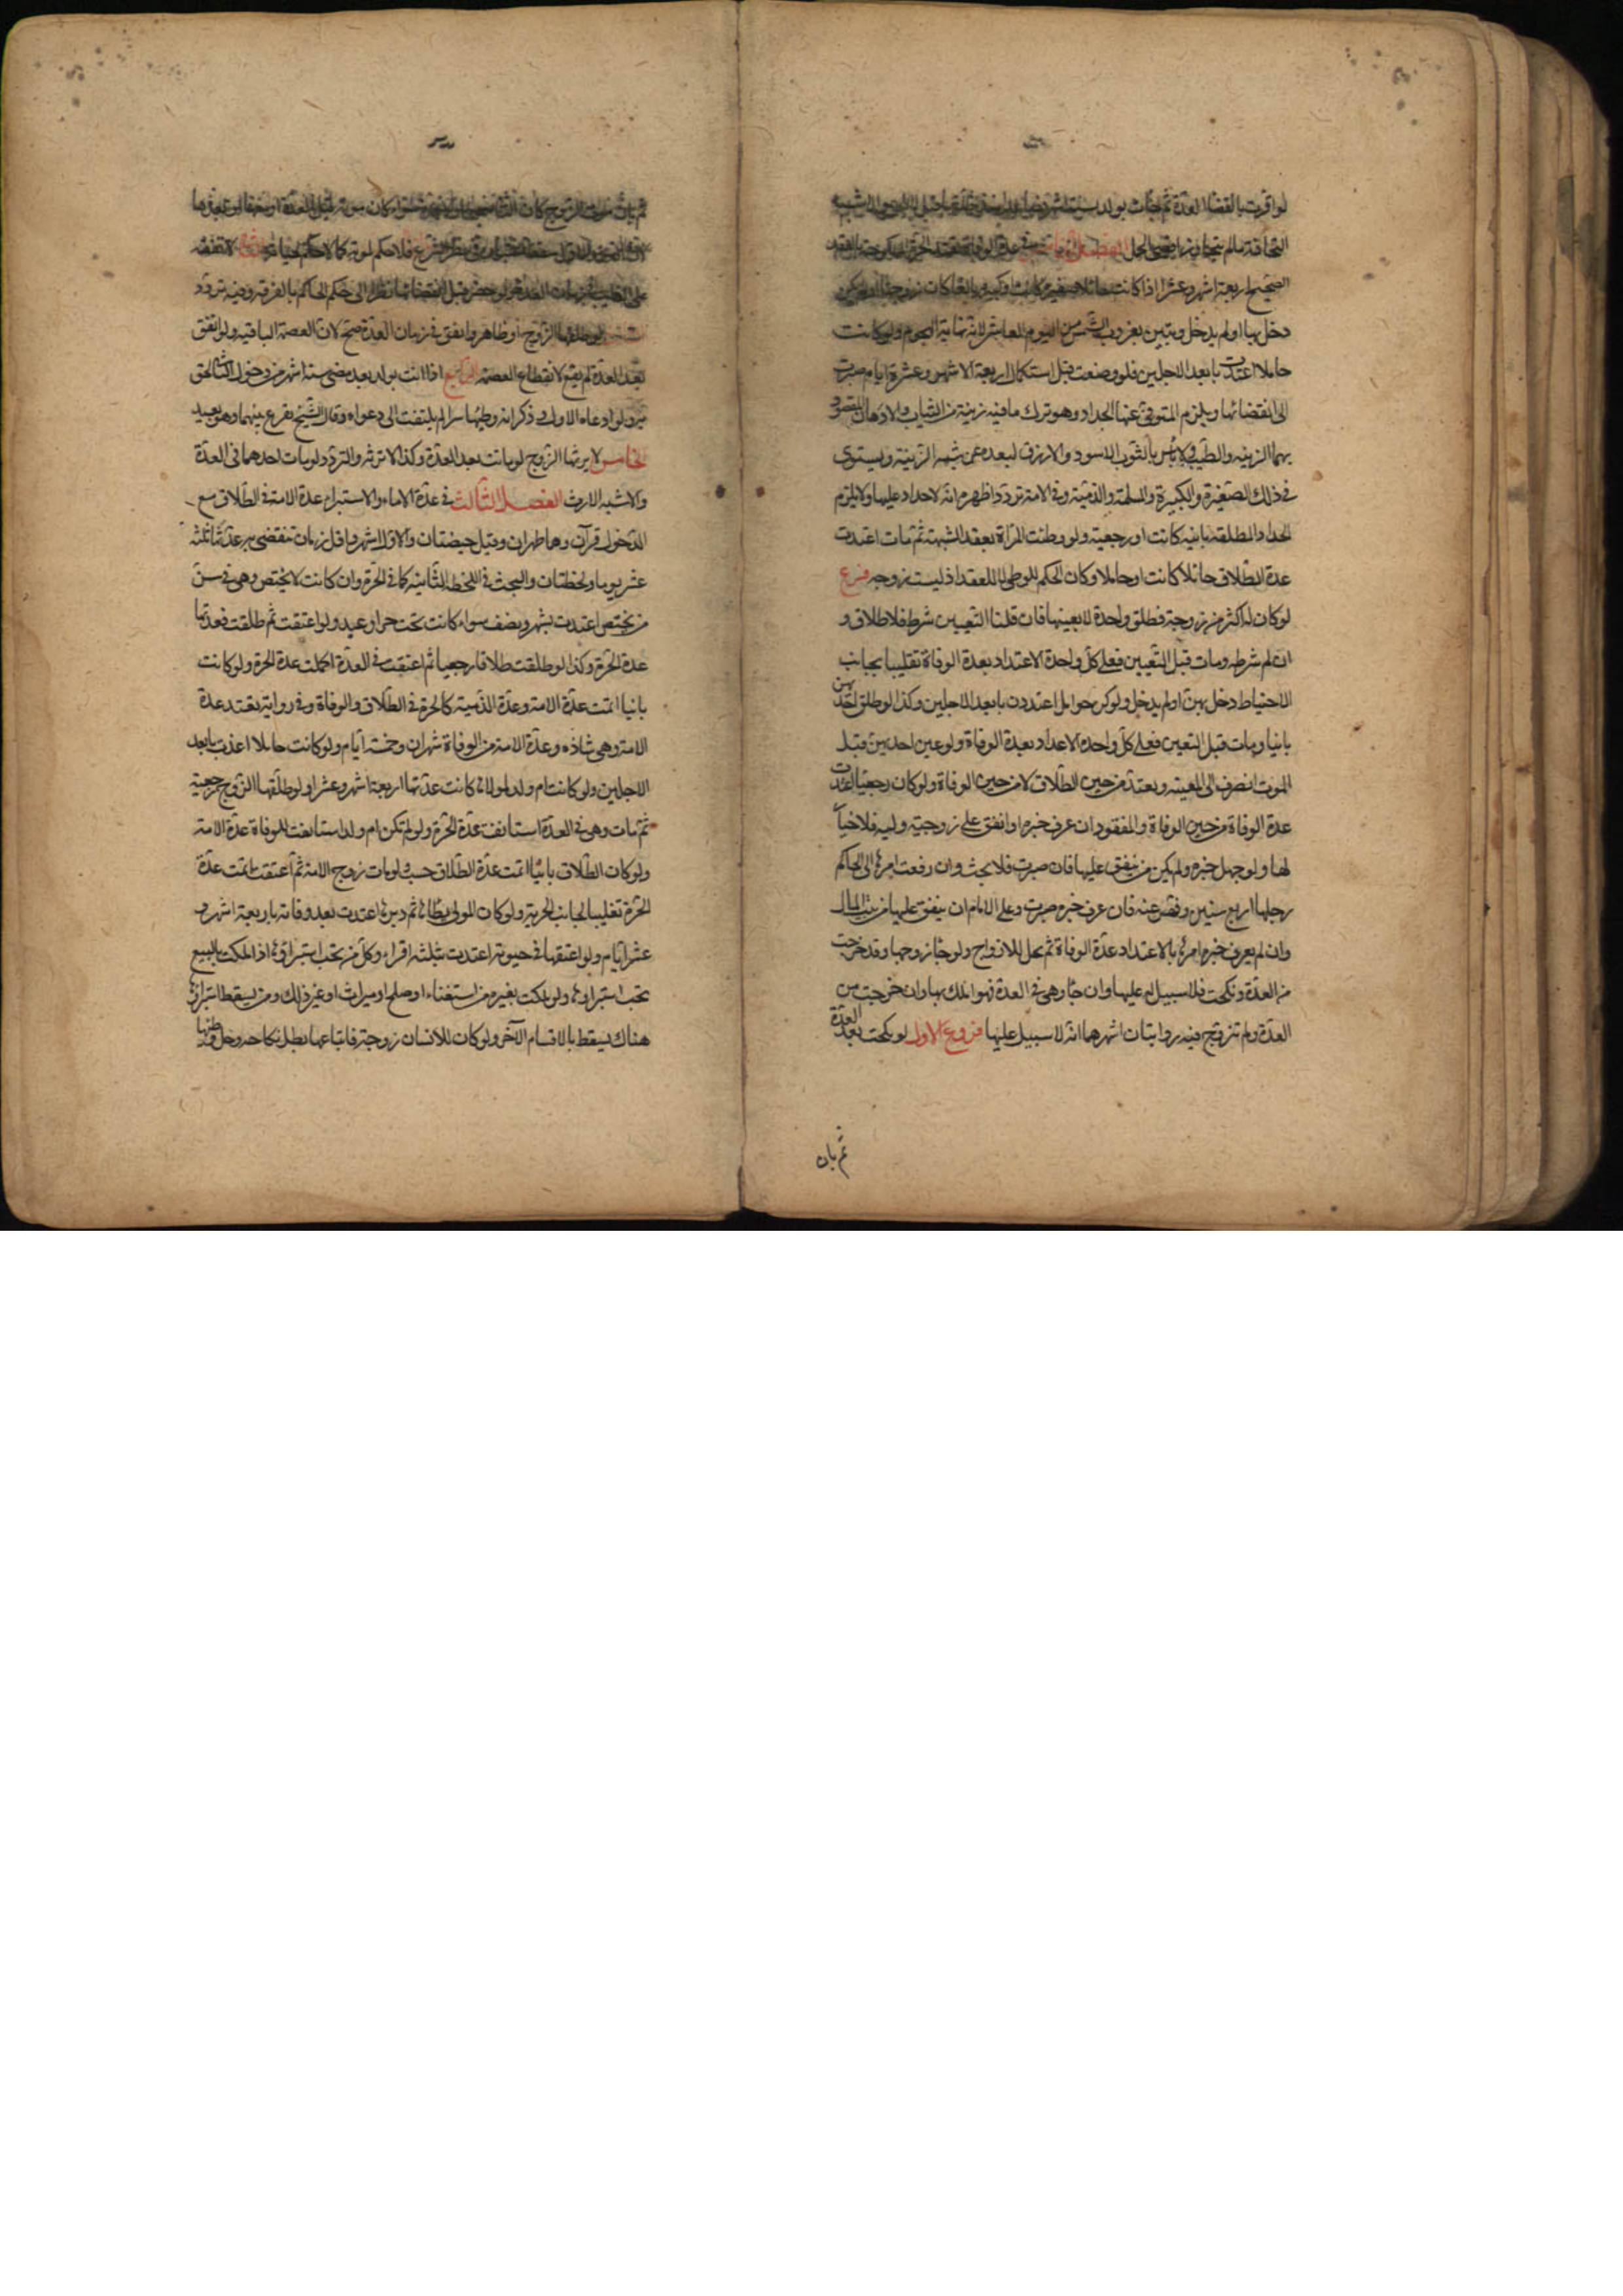 لو اقرت بانقضاء العدة ثم جاءت بولد لستة اشهر
التحاقه به ما لم يتجاوز اقصى الحمل الفصل في عدة الوفاة تعتد الحرة المنكوحة بالعقد
الصحيح اربعة اشهر وعشرا اذا كانت حائلا صغيرة كانت او كبيرة بالغا كان زوجها او لم يكن
دخل بها او لم يدخل وتبين بغروب الشمس من اليوم العاشر لانه نهاية اليوم ولو كانت
حاملا اعتدت بابعد الاجلين فلو وضعت قبل استكمال اربعة الاشهر وعشرة ايام صبرت
الى انقضائها ويلزم المتوفى عنها الحداد وهو ترك ما فيه زينة من الثياب والادهان المقصود
بهما الزينه والطيب ولا بأس بالثوب الاسود والازرق لبعده عن شبه الزينة ويستوى
فى ذلك الصغيرة والكبيرة والمسلمة والذمية وفى الامة تردد اظهره انه لا حداد عليها ولا يلزم
الحداد المطلقه باينه كانت او رجعية ولو وطئت المراة بعقد الشبهة ثم مات اعتدت
عدة الطلاق حائلا كانت او حاملا وكان الحكم للوطى لا للعقد اذ ليست زوجه فرع
لو كان له اكثر من زوجة فطلق واحدة لا بعينها فان قلنا التعيين شرط فلا طلاق و
ان لم نشرطه ومات قبل التعيين فعلى كل واحدة الاعتداد بعدة الوفاة تغليبا بجانب
الاحتياط دخل بهن او لم يدخل ولو كن حوامل اعتددن بابعد الاجلين وكذا لو طلق احديهن
باينا ومات قبل التعيين فعلى كل واحدة الاعداد بعدة الوفاة ولو عين احديهن قبل
الموت انصرف الى المعينه وتعتد من حين الطلاق لا من حين الوفاة ولو كان رجعيا اعتدت
عدة الوفاة من حين الوفاة والمفقود ان عرف خبره او انفق على زوجته وليه فلا خيار
لها ولو جهل خبره ولم يكن من ينفق عليها فان صبرت فلا بحث وان رفعت امرها الى الحاكم
اجلها اربع سنين وفحص عنه فان عرف خبره صبرت وعلى الامام ان ينفق عليها من بيت المال
وان لم يعرف خبره امرها بالاعتداد عدة الوفاة ثم تحل للازواج ولو جاء زوجها وقد خرجت
من العدة ونكحت فلا سبيل له عليها وان جاء وهى فى العدة فهو املك بها وان خرجت من
العدة ولم تتزوج فيه روايتان اشهرهما انه لا سبيل عليها فروع الاول لو نكحت بعد العدة
ثم بان
ثم بان موت الزوج كان الثانى صحيحا ولا عدة سواء كان موته قبل العدة او معها او بعدها
فلا حكم لموته كما لا حكم لحياته لا نفقه
على الغايب فى زمان العدة ولو حضر قبل انقضائها نظرا الى حكم الحاكم بالفرقة وفيه تردد
لو طلقها الزوج او ظاهر واتفق فى زمان العدة صح لان العصمة الباقيه ولو اتفق
بعد العدة لم يقع لانقطاع العصمة الرابع اذا اتت بولد بعد مضى ستة اشهر من دخول الثانى لحق
به ولو ادعاه الاول وذكر انه وطيها سرا لم يلتفت الى دعواه وقال الشيخ يقرع بينهما وهو بعيد
الخامس لا يرثها الزوج لو ماتت بعد العدة وكذا لا ترثه والتردد لو مات احدهما فى العدة
والاشبه الارث الفصل الثالث فى عدة الاماء والاستبراء عدة الامة فى الطلاق مع
الدخول قرآن وهما طهران وقيل حيضتان والاول اشهر واقل زمان تنقضى به عدتها ثلثه
عشر يوما ولحظتان والبحث فى اللحظة الثانيه كما فى الحرة وان كانت لا تحيض وهى فى سن
من تحيض اعتدت بشهر ونصف سواء كانت تحت حر او عبد ولو اعتقت ثم طلقت فعدتها
عدة الحرة وكذا لو طلقت طلاقا رجعيا ثم اعتقت فى العدة اكملت عدة الحرة ولو كانت
باينا اتمت عدة الامة وعدة الذمية كالحرة فى الطلاق والوفاة وفى رواية تعتد عدة
الامة وهى شاذه وعدة الامة من الوفاة شهران وخمسة ايام ولو كانت حاملا اعتدت بابعد
الاجلين ولو كانت ام ولد لمولاها كانت عدتها اربعة اشهر وعشرا ولو طلقها الزوج رجعية
ثم مات وهى فى العدة استأنفت عدة الحرة ولو لم تكن ام ولد استانفت للوفاة عدة الامة
ولو كان الطلاق باينا اتمت عدة الطلاق حسب ولو مات زوج الامة ثم اعتقت اتمت عدة
الحرة تغليبا لجانب الحرية ولو كان المولى يطأها ثم دبرها اعتدت بعد وفاته باربعة اشهر و
عشرة ايام ولو اعتقها فى حيوته اعتدت بثلثه اقراء وكل من يجب استبراؤها اذا ملكت بالبيع
يجب استبراؤها ولو ملكت بغيره من استغناء او صلح او ميراث او غير ذلك ومن يسقط استبراؤها
هناك يسقط بالاقسام الآخر ولو كان للانسان زوجة فابتاعها بطل نكاحه وحل له وطئها